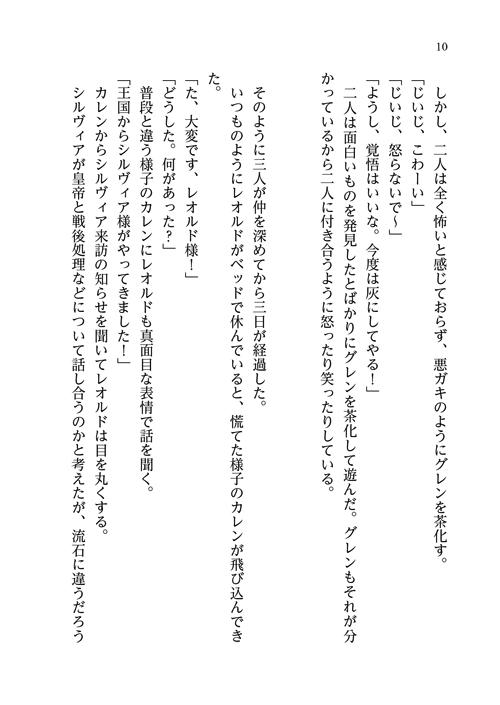 10
しかし、二人は全く怖いと感じておらず、悪ガキのようにグレンを茶化す。
「じいじ、こわーい」
「じいじ、怒らないで～」
「ようし、覚悟はいいな。今度は灰にしてやる！」
二人は面白いものを発見したとばかりにグレンを茶化して遊んだ。グレンもそれが分
かっているから二人に付き合うように怒ったり笑ったりしている。
そのように三人が仲を深めてから三日が経過した。
いつものようにレオルドがベッドで休んでいると、慌てた様子のカレンが飛び込んでき
た。
「た、大変です、レオルド様！」
「どうした。何があった？」
普段と違う様子のカレンにレオルドも真面目な表情で話を聞く。
「王国からシルヴィア様がやってきました！」
カレンからシルヴィア来訪の知らせを聞いてレオルドは目を丸くする。
シルヴィアが皇帝と戦後処理などについて話し合うのかと考えたが、流石に違うだろう